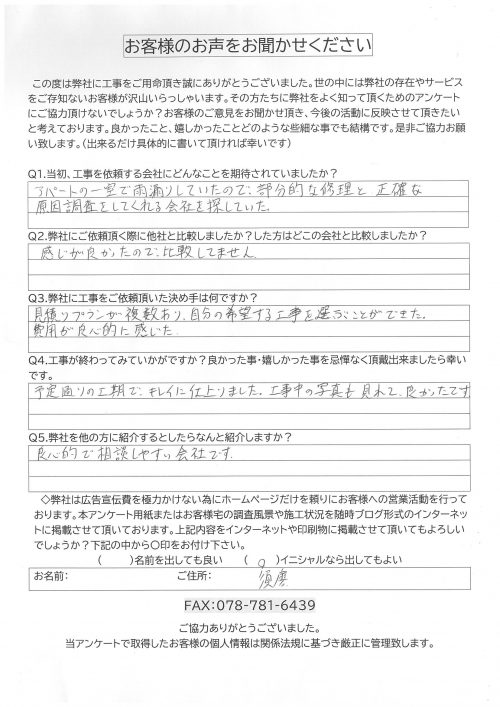 お客様のお声をお聞かせください
この度は弊社に工事をご用命頂き誠にありがとうございました。世の中には弊社の存在やサービス
をご存知ないお客様が沢山いらっしゃいます。その方たちに弊社をよく知って頂くためのアンケート
にご協力頂けないでしょうか?お客様のご意見をお聞かせ頂き、今後の活動に反映させて頂きたい
と考えております。良かったこと、嬉しかったことどのような些細な事でも結構です。是非ご協力お願
い致します。（出来るだけ具体的に書いて頂ければ幸いです）
Q1.当初、工事を依頼する会社にどんなことを期待されていましたか?
アパートの一室で雨漏りしていたので、部分的な修理と正確な
原因調査をしてくれる会社を探していた。
Q2.弊社にご依頼頂く際に他社と比較しましたか?した方はどこの会社と比較しましたか?
感じが良かったので、比較してません
Q3.弊社に工事をご依頼頂いた決め手は何ですか?
見積りプランが複数あり、自分の希望する工事を選ぶことができた。
費用が良心的に感じた。
Q4.工事が終わってみていかがですか?良かった事・嬉しかった事を忌憚なく頂戴出来ましたら幸い
です。
予定通りの工期で、キレイに仕上りました。工事中の写真も見れて、良かったです
Q5.弊社を他の方に紹介するとしたらなんと紹介しますか?
良心的で相談しやすい会社です.
◇弊社は広告宣伝費を極力かけない為にホームページだけを頼りにお客様への営業活動を行って
おります。本アンケート用紙またはお客様宅の調査風景や施工状況を随時ブログ形式のインターネッ
トに掲載させて頂いております。上記内容をインターネットや印刷物に掲載させて頂いてもよろしい
でしょうか?下記の中から〇印をお付け下さい。
（　　）名前を出しても良い　（ ○ ）イニシャルなら出してもよい
お名前：　ご住所：　須磨
FAX:078-781-6439
ご協力ありがとうございました。
当アンケートで取得したお客様の個人情報は関係法規に基づき厳正に管理致します。